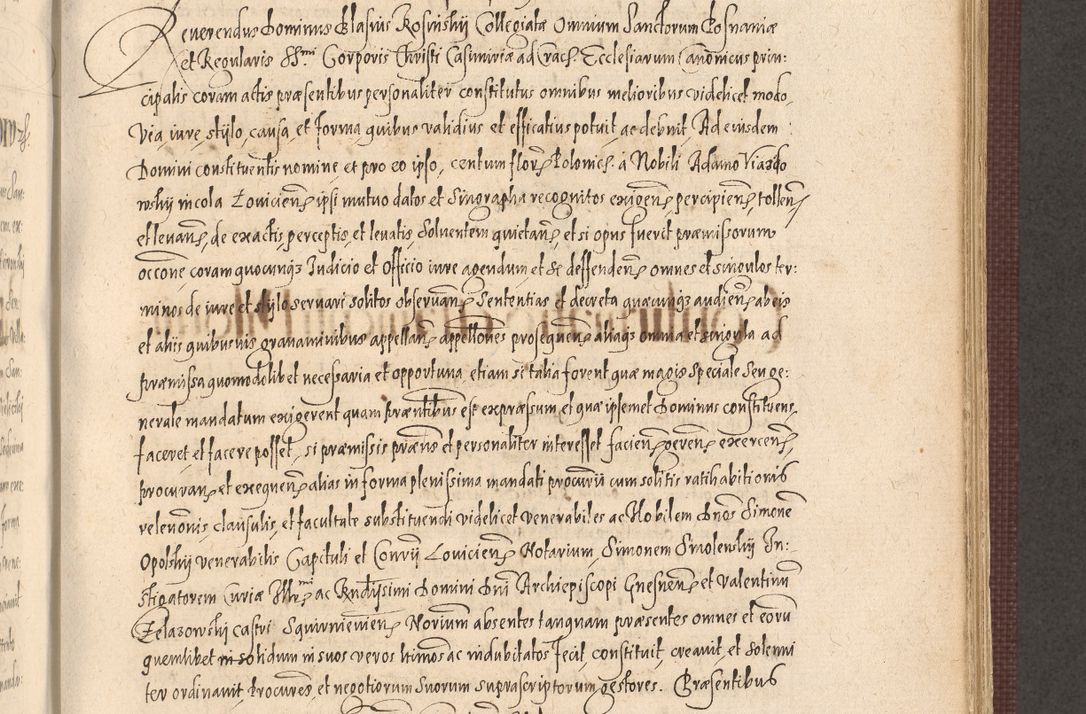 Reverendus Dominus Blasius Rosinskij Collegiatæ Omnium Sanctorum Posnaniæ
et Regularis SS.mi Corporis Christi Casimiriæ ad Crach. Ecclesiarum Canonicus prin:
cipalis coram actis præsentibus personaliter constitutus omnibus melioribus videlicet modo,
via, iure, stylo, causa, et forma quibus validius et efficatius potuit ac debuit Ad eiusdem
Domini constituentis nomine, et pro eo ipso, centum flor. Polonich. à Nobili Adamo Viazdo
wskij incola Lovicien. ipsi mutuo datos et Singrapha recognitos exigen. percipien. tollen.
et levan., de exactis, perceptis, et levatis, Solventem quietan., et si opus fuerit præmissorum
occone coram quocunqz Iudicio et Officio iure agendum et se deffenden. omnes et singulos ter:
minos de iure et stylo servari solitos observan. Sententias et decreta quæcunqz audien. ab eis
et aliis quibusvis gravaminibus appellan. appellones prosequen. aliaqz omnia et singula ad
præmissa quomodolibet necessaria et opportuna, etiam si talia forent quæ magis speciale seu ge:
nerale mandatum exigerent quam præntibus est expræssum, et quæ ipsemet Dominus constituens
faceret et facere posset, si præmissis præns et personaliter interesset facien. geren. exercen.
procuran. et exequen. alias in forma plenissima mandati procurii cum solitis ratihabitionis
relevonis, clausulis, et facultate substituendi videlicet venerabiles ac Nobilem Dnos Simone
Opolskij venerabilis Capituli et Convij Lovicien. Notarium, Simonem Smolenskij In:
stigatorem Curiæ Illr.mi ac Rndissimi Domini Dni Archiepiscopi Gnesnen. et Valentinu
Zelazowskij castri Squirnievien. Norium absentes tanquam præsentes omnes et eoru
quemlibet in solidum in suos veros ltimos ac indubitatos fecit, constituit, creavit, et solemni
ter ordinavit Procures, et negotiorum suorum suprascriptorum gestores. Præsentibus